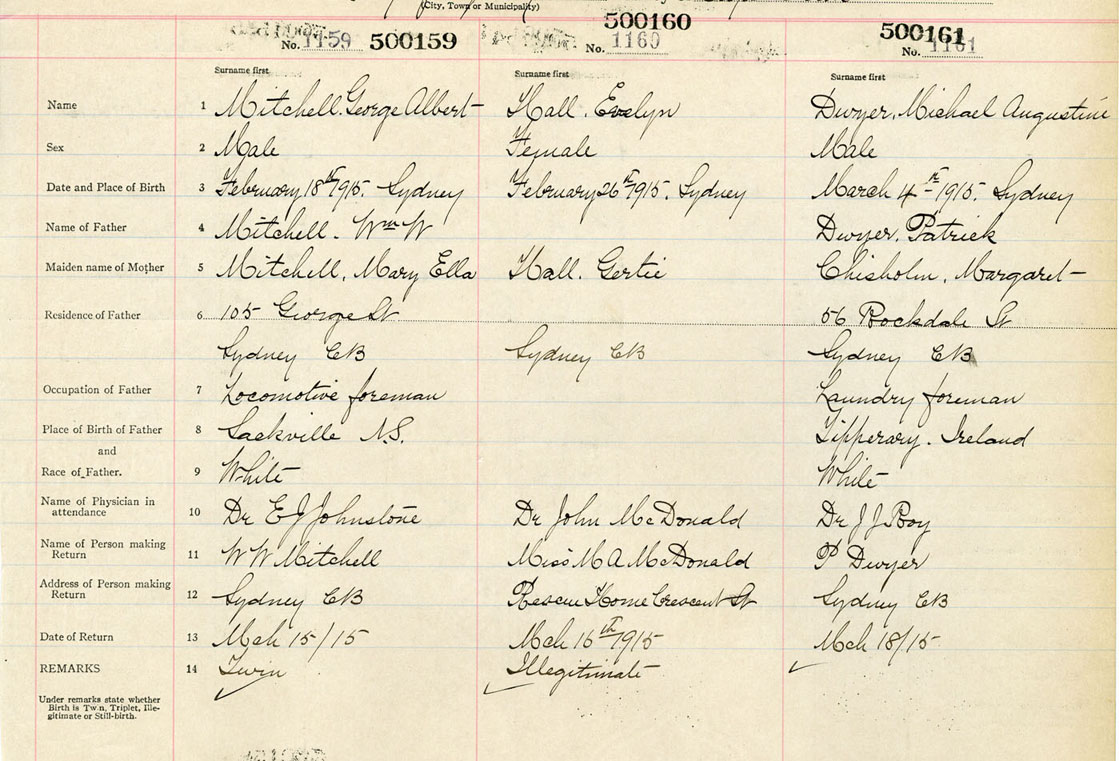 (City, Town or Municipality)
No. 1159 500159 500160 No. 1160 500161 No. 1161
Surname first Surname first Surname first
Name 1 Mitchell. George Albert Hall. Evelyn Dwyer. Michael Augustine
Sex 2 Male Female Male
Date and Place of Birth 3 February 18th 1915. Sydney February 26th 1915. Sydney March 4th 1915. Sydney
Name of Father 4 Mitchell. Wm W Dwyer. Patrick
Maiden name of Mother 5 Mitchell, Mary Ella Hall. Gertie Chisholm, Margaret
Residence of Father 6 105 George St 56 Rockdale St
Sydney CB Sydney CB Sydney CB
Occupation of Father 7 Locomotive foreman Laundry foreman
Place of Birth of Father 8 Sackville N.S. Tipperary. Ireland
and
Race of Father. 9 White White
Name of Physician in
attendance 10 Dr E J Johnstone Dr John McDonald Dr J J Roy
Name of Person making
Return 11 W W Mitchell Miss M A McDonald P Dwyer
Address of Person making
Return 12 Sydney CB Rescue Home Crescent St Sydney CB
Date of Return 13 Mch 15/15 Mch 16th 1915 Mch 18/15
REMARKS 14 Twin Illegitimate
Under remarks state whether
Birth is Twin, Triplet, Ille-
gitimate or Still-birth.